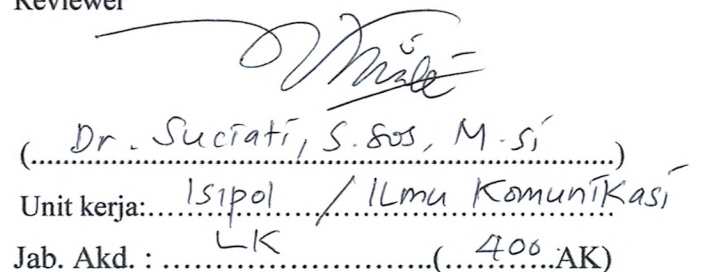 Reviewer
(Dr. Suciati, S.Sos, M.si)
Unit kerja: Isipol / ILmu Komunikasi
Jab. Akd. : LK (400 AK)